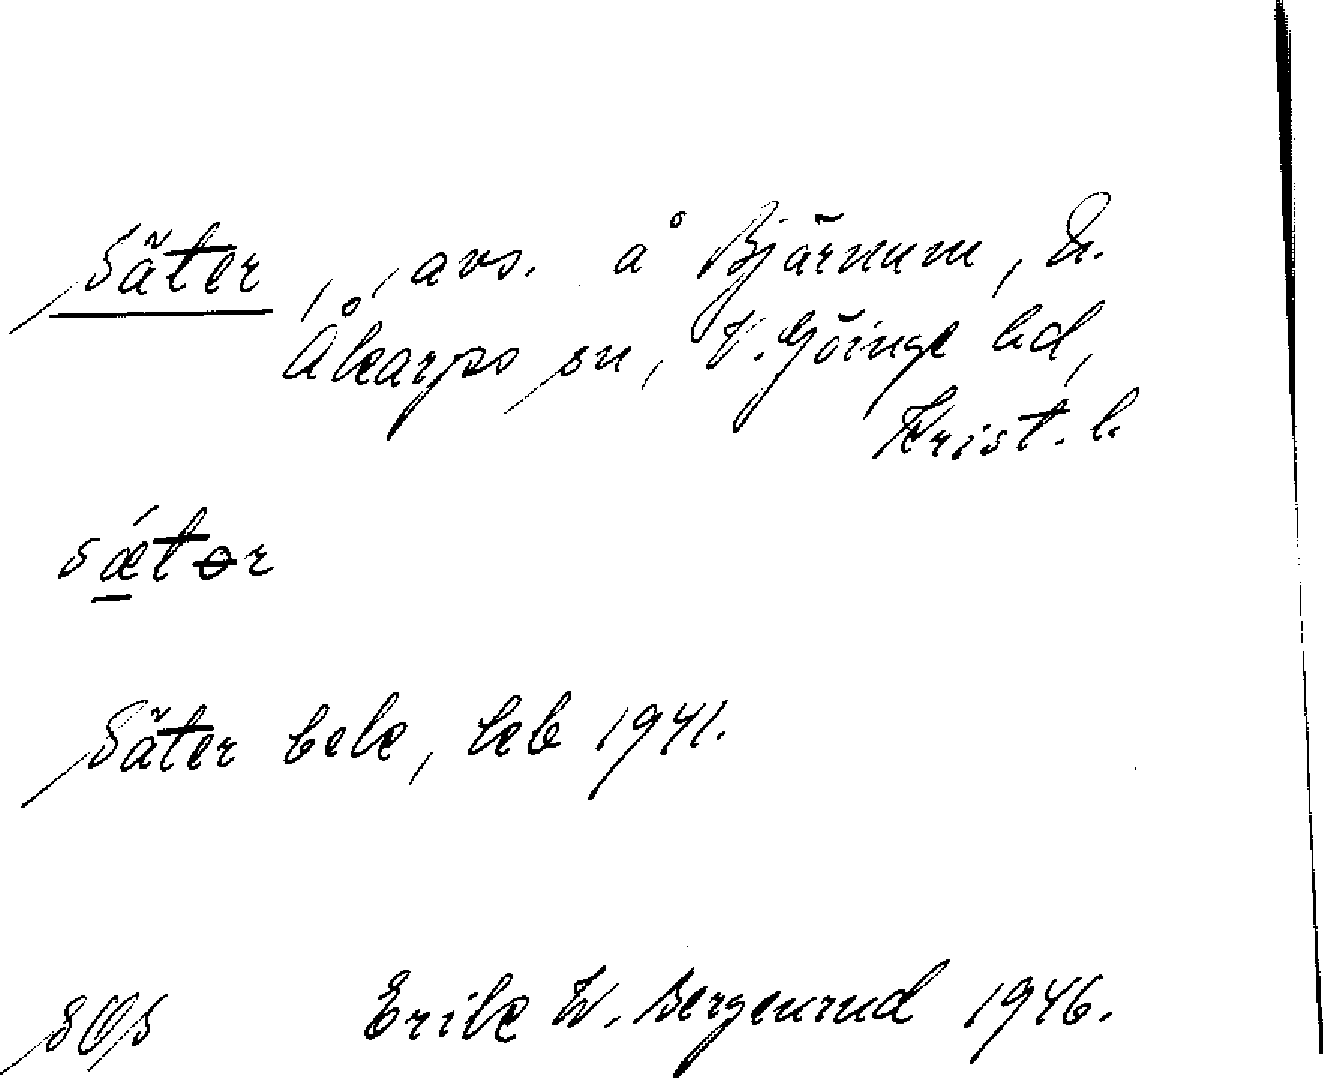 Säter, , avs. å Bjärnum, N.
Åkarps sn, V. Göinge hd,
Krist. l.
sǽtər
Säter bebe, keb 1941.
SOS Erik W. Bergenrud 1946.